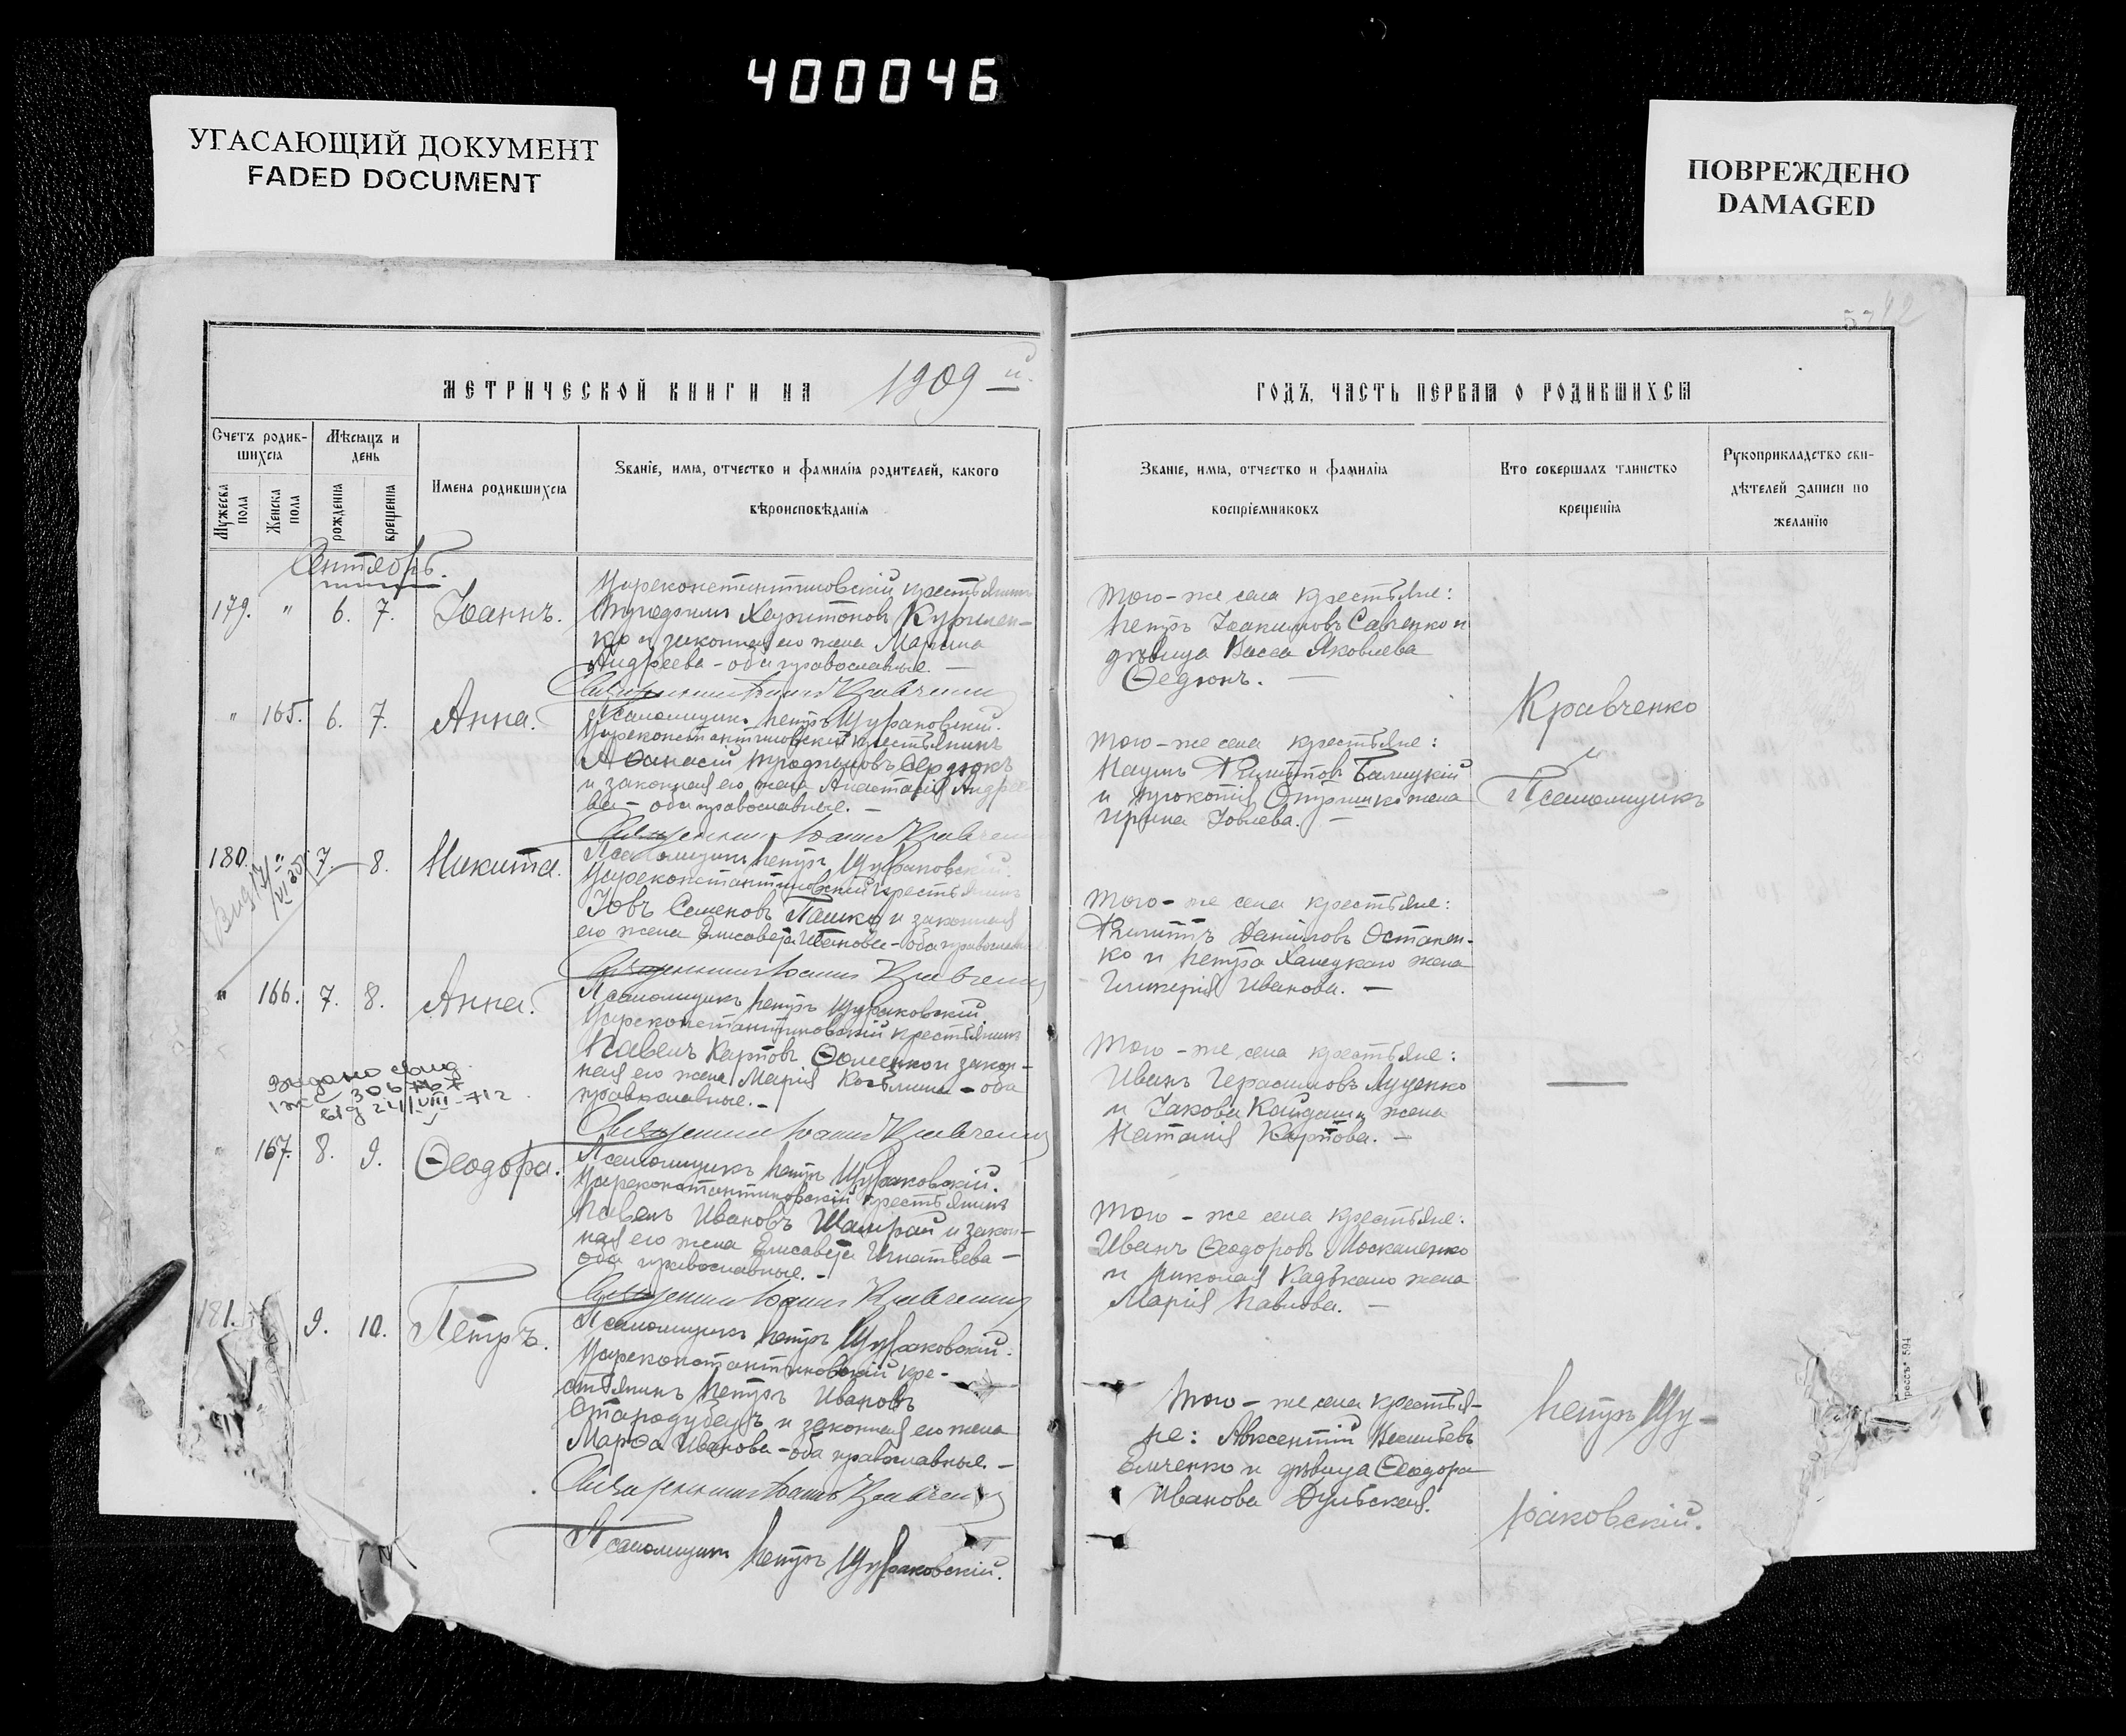 400046
УГАСАЮЩИЙ ДОКУМЕНТ
FADED DOCUMENT
ПОВРЕЖДЕНО
DAMAGED
42
МЕТРИЧЕСКОЙ КНИГИ НА 1909 й.
ГОДЪ, ЧАСТЬ ПЕРВАЯ О РОДИВШИХСЯ
Счетъ родив-
шихся
Мѣсяцъ и
день
Имена родившихся
Званіе, имя, отчество и фамилія родителей, какого
вѣроисповѣданія
Мужеска
пола
Женска
пола
рожденія
крещенія
Званіе, имя, отчество и фамилія
воспріемниковъ
Кто совершалъ таинство
крещенія
Рукоприкладство сви-
дѣтелей записи по
желанію
Сентябрь.
179. " 6. 7. Іоаннъ.
Цареконстантиновскій крестьянинъ
Харитоновъ Курилен-
ко и законная его жена Марина
Андреева - оба православные. —
Священникъ Іоаннъ Кравченко
Псаломщикъ Петръ Щураковскій.
Того-же села крестьяне:
Петръ Іоакимовъ Савченко и
дѣвица Васса Яковлева
Ѳедюкъ. —
" 165. 6. 7. Анна.
Цареконстантиновскій крестьянинъ
Аѳанасій Трофимовъ Сердюкъ
и законная его жена Анастасія Андрее-
ва - оба православные. —
Священникъ Іоаннъ Кравченко
Псаломщикъ Петръ Щураковскій.
Того-же села крестьяне:
Наумъ Филиповъ Балицкій
и Прокопія жена
Ирина Іовлева. —
180. " 7. 8. Никита.
Цареконстантиновскій крестьянинъ
Іовъ Семеновъ Пашко и законная
его жена Елисавета Иванова - оба православные
Священникъ Іоаннъ Кравченко
Псаломщикъ Петръ Щураковскій.
Того-же села крестьяне:
Филиппъ Даниловъ Остапен-
ко и Петра Халецкаго жена
Гликерія Иванова. —
" 166. 7. 8. Анна.
Цареконстантиновскій крестьянинъ
Павелъ Карповъ Ѳоменко и закон-
ная его жена Марія Космина - оба
православные. —
Священникъ Іоаннъ Кравченко
Псаломщикъ Петръ Щураковскій.
Того-же села крестьяне:
Иванъ Герасимовъ Луценко
и Іакова Кайдаша жена
Наталія Карпова. —
Выдано свид.
167. 8. 9. Ѳеодора.
Цареконстантиновскій крестьянинъ
Павелъ Ивановъ Шамрай и закон-
ная его жена Елисавета Игнатьева —
оба православные. —
Священникъ Іоаннъ Кравченко
Псаломщикъ Петръ Щураковскій.
Того-же села крестьяне:
Иванъ Ѳеодоровъ Москаленко
и Николая жена
Марія Павлова. —
181. 9. 10. Петръ.
Цареконстантиновскій кре-
стьянинъ Петръ Ивановъ
Стародубецъ и законная его жена
Марѳа Иванова - оба православные. —
Священникъ Іоаннъ Кравченко
Псаломщикъ Петръ Щураковскій.
Того-же села крестья-
не: Авксентій
и дѣвица Ѳеодора
Иванова Дульская.
Кравченко
и
Псаломщикъ
Петръ Щу-
раковскій.